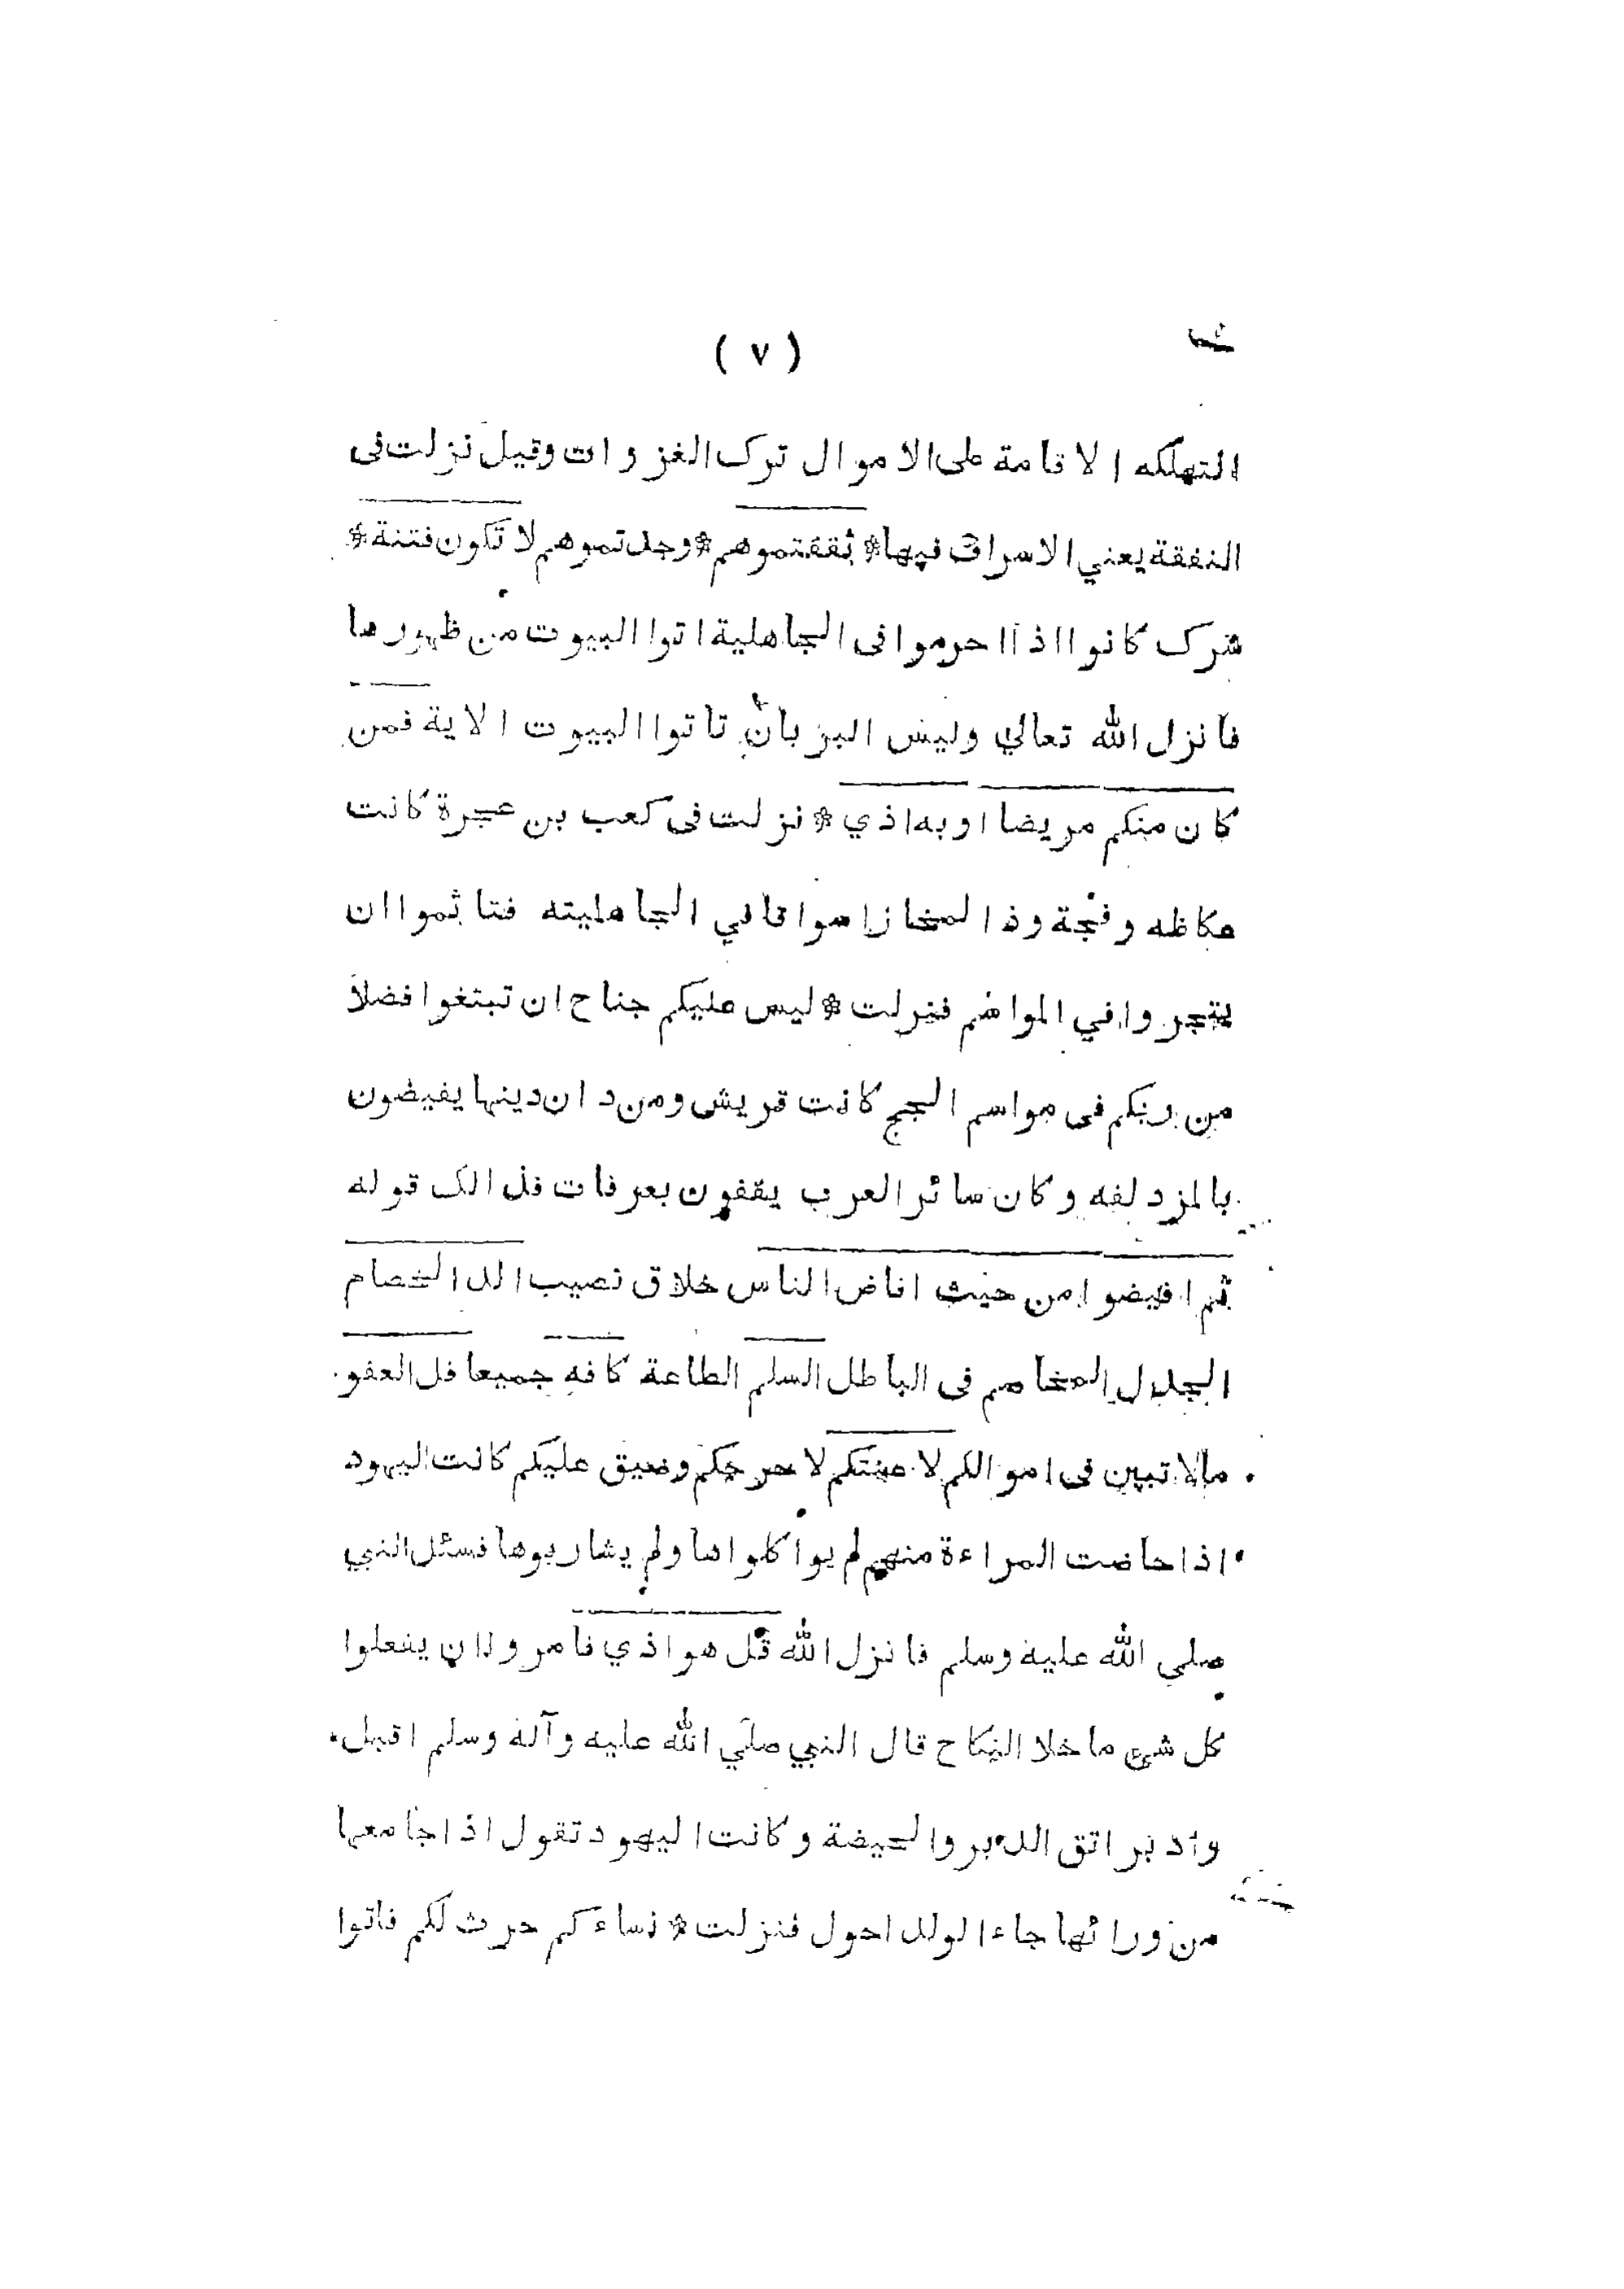 ( ٧ )
التهلكه الاقامة على الاموال ترك الغزوات وقيل نزلت فى
النفقة يعني الاسراف فيها * ثقفتموهم * وجدتموهم لا تكون فتنة *
شرك كانوا اذا احرموا فى الجاهلية اتوا البيوت من ظهورها
فانزل الله تعالي وليس البر بان تاتوا البيوت الاية فمن
كان منكم مريضا اوبه اذي * نزلت فى كعب بن عجرة كانت
عكاظه وفجة وذالمخازا سواقا في الجاهليته فتاثموا ان
يتجروا في المواسم فنزلت * ليس عليكم جناح ان تبتغوا فضلا
من ربكم فى مواسم الحج كانت قريش ومن دان دينها يفيضون
بالمزدلفه وكان سائر العرب يقفون بعرفات فذالك قوله
ثم افيضوا من حيث افاض الناس خلاق نصيب الد الخصام
الجدال المخاصم فى الباطل السلم الطاعة كافه جميعا قل العفو
مالا تبين فى اموالكم لاعنتكم لا حرجكم وضيق عليكم كانت اليهود
اذا حاضت المراءة منهم لم يواكلواها ولم يشاربوها فسئل النبي
صلي الله عليه وسلم فانزل الله قل هو اذي فامروا ان يفعلوا
كل شيء ما خلا النكاح قال النبي صلي الله عليه وآله وسلم اقبل
وادبر اتق الدبر والحيضة وكانت اليهود تقول اذا جامعها
من ورائها جاء الولد احول فنزلت * نساءكم حرث لكم فاتوا